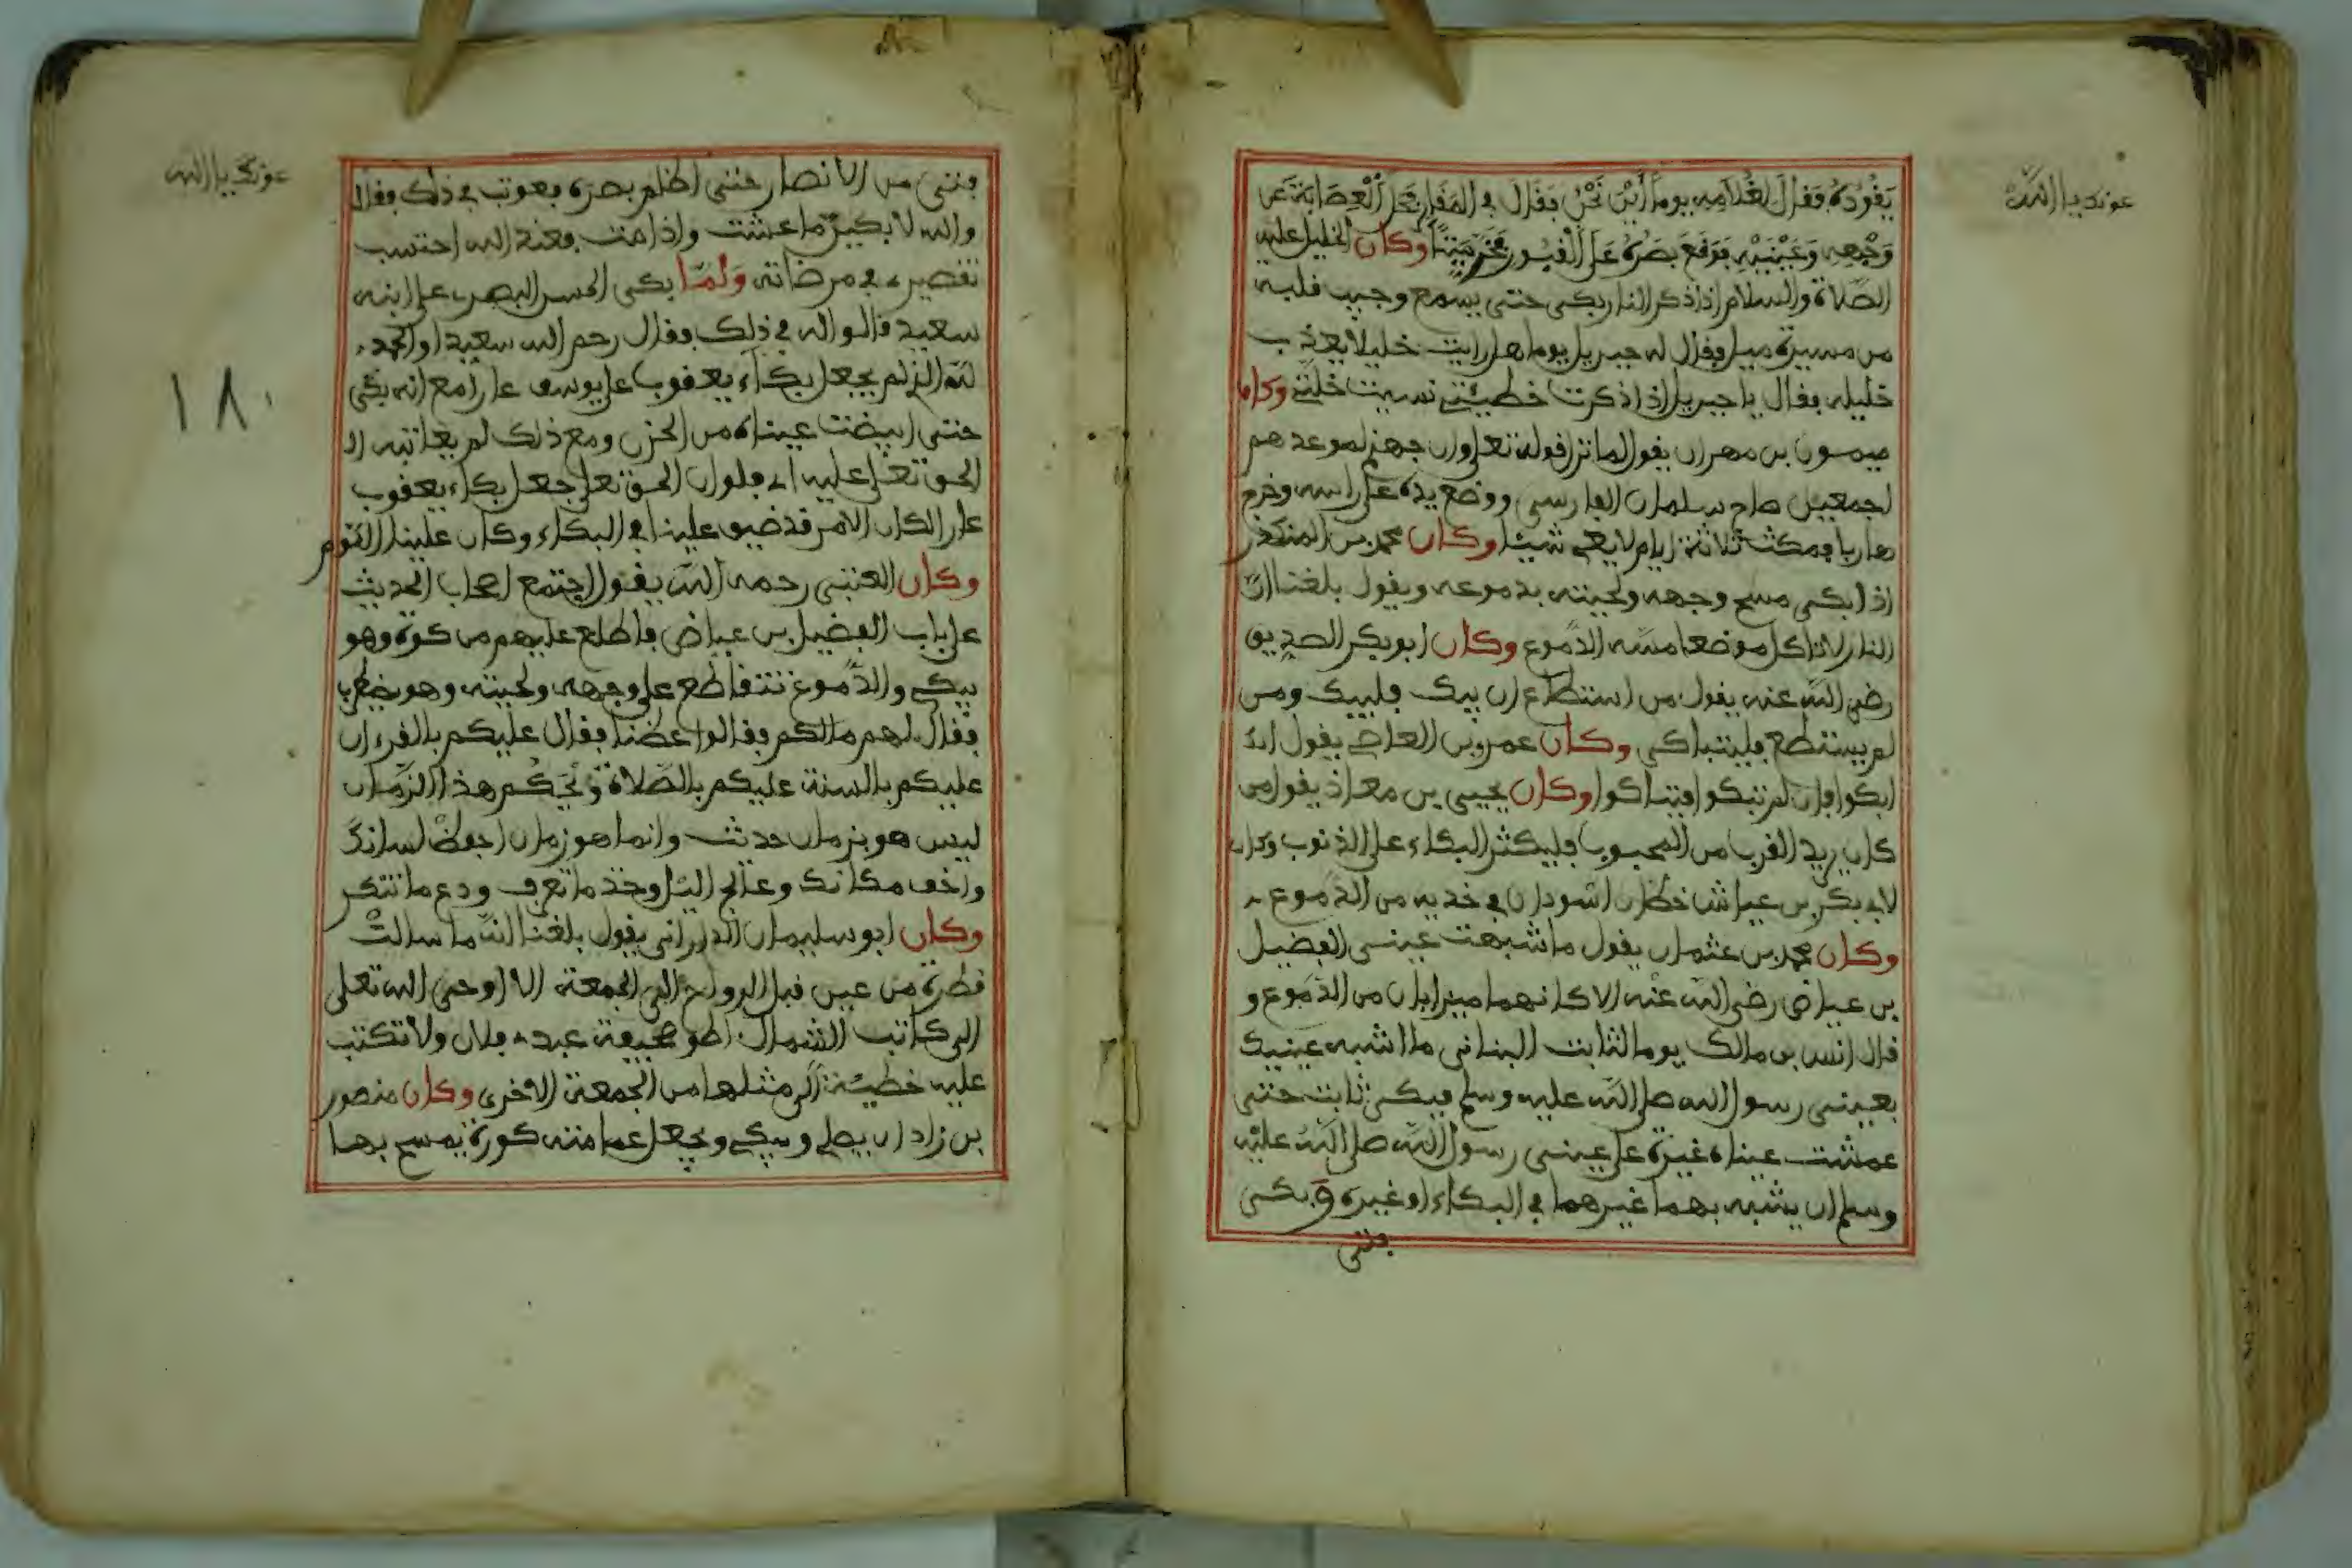 عونك يا الله
يقوده فقال لغلامه يوما أين نحن فقال في المقابر فحل العصابة عن
وجهه وعينيه فرفع بصره على القبور فخر ميتا وكان الخليل عليه
الصلاة والسلام اذا ذكر النار بكى حتى يسمع وجيب قلبه
من مسيرة ميل فقال له جبريل يوما هل رايت خليلا يعذب
خليله فقال يا جبريل اذا ذكرت خطيئتي نسيت خلتي وكان
ميمون بن مهران يقول لما نزل قوله تعلى وان جهنم لموعدهم
اجمعين صاح سلمان الفارسي ووضع يده على راسه وخرج
هاربا فمكث ثلاثة ايام لا يعي شيئا وكان محمد بن المنكدر
اذا بكى مسح وجهه ولحيته بدموعه ويقول بلغنا ان
النار لا تاكل موضعا مسه الدموع وكان ابو بكر الصديق
رضي الله عنه يقول من استطاع ان يبك فليبك ومن
لم يستطع فليتباكى وكان عمرو بن العاصي يقول
ابكوا فان لم تبكوا فتباكوا وكان يحيى بن معاذ يقول من
كان يريد القرب من المحبوب فليكثر البكاء على الذنوب وكان
لابي بكر بن عياش خطان اسودان في خديه من الدموع
وكان محمد بن عثمان يقول ما شبهت عيني الفضيل
بن عياض رضي الله عنه الا كانهما ميزابان من الدموع و
قال انس بن مالك يوما لثابت البناني ما اشبه عينيك
بعيني رسول الله صلى الله عليه وسلم فبكى ثابت حتى
عمشت عيناه غيرة على عيني رسول الله صلى الله عليه
وسلم ان يشبه بهما غيرهما في البكاء او غيره وبكى
فتى
عونك يا الله
فتى من الانصار حتى اظلم بصره فعوتب في ذلك فقال
والله لابكين ما عشت واذا مت فعند الله احتسب
تقصيري في مرضاته ولما بكى الحسن البصري على ابنه
سعيد قالوا له في ذلك فقال رحم الله سعيدا والحمد
لله الذي لم يجعل بكاء يعقوب على يوسف عارا مع انه بكى
حتى ابيضت عيناه من الحزن ومع ذلك لم يعاتبه
الحق تعلى عليه اي فلو ان الحق تعلى جعل بكاء يعقوب
عارا لكان الامر قد ضيق علينا في البكاء وكان علينا اللوم
وكان العتبي رحمه الله يقول اجتمع اصحاب الحديث
على باب الفضيل بن عياض فاطلع عليهم من كوة وهو
يبكي والدموع تتقاطع على وجهه ولحيته وهو يضطرب
فقال لهم ما لكم فقالوا عضنا فقال عليكم بالقرءان
عليكم بالسنة عليكم بالصلاة ويحكم هذا الزمان
ليس هو بزمان حدثث وانما هو زمان احفظ لسانك
واخف مكانك وعالج الليل وخذ ما تعرف ودع ما تنكر
وكان ابو سليمان الداراني يقول بلغنا انه ما سالت
قطرة من عين قبل الرواح الى الجمعة الا اوحى الله تعلى
الى كاتب الشمال اطو صحيفة عبدي فلان ولا تكتب
عليه خطيئة الى مثلها من الجمعة الاخرى وكان منصور
بن زادان يصلي ويبكي ويجعل عمامته كورة يمسح بها
١٨٠